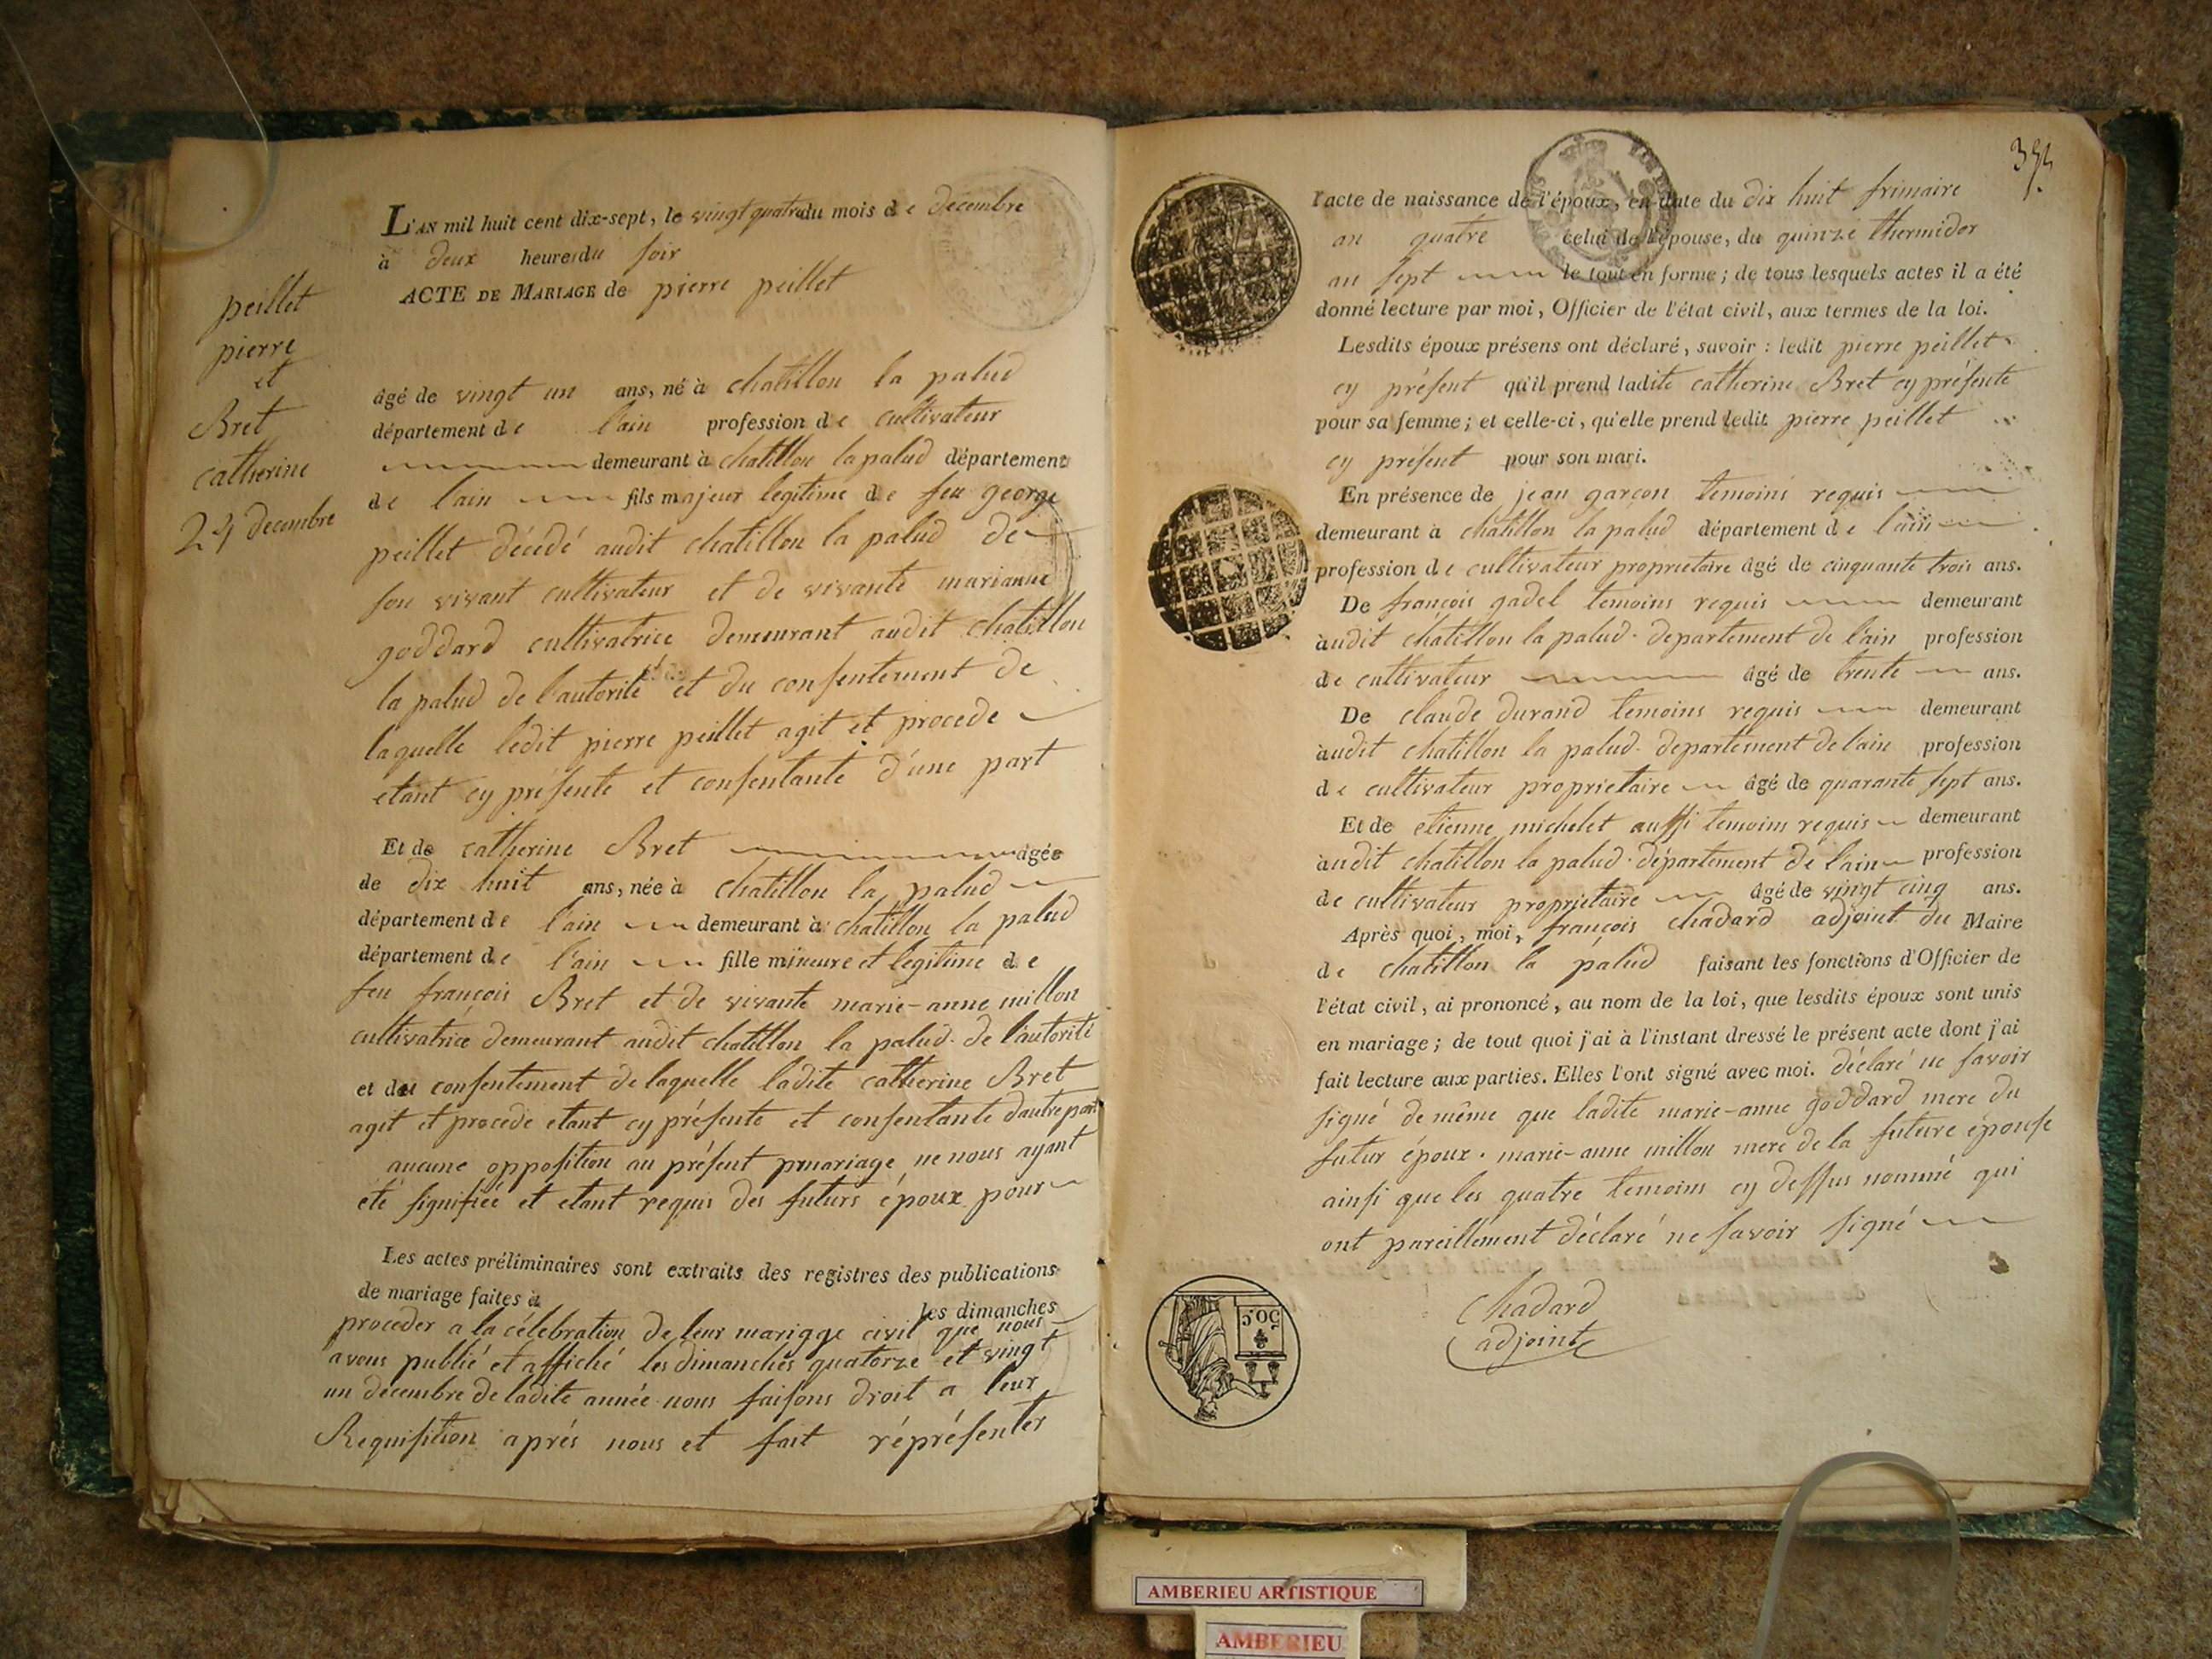 peillet
pierre
et
Bret
catherine
24 decembre
L'AN mil huit cent dix-sept, le vingt quatre du mois de décembre
à deux heure du soir
ACTE DE MARIAGE de pierre peillet
âgé de vingt un ans, né à chatillon la palud
département de l'ain profession de cultivateur
demeurant à chatillon la palud département
de l'ain fils majeur legitime de feu george
peillet décédé audit chatillon la palud de
son vivant cultivateur et de vivante marianne
goddard cultivatrice demeurant audit chatillon
la palud de l'autorité et du consentement de
laquelle ledit pierre peillet agit et procede
etant cy présente et consentante d'une part
Et de catherine Bret âgée
de dix huit ans, née à chatillon la palud
département de l'ain demeurant à chatillon la palud
département de l'ain fille mineure et legitime de
feu françois Bret et de vivante marie-anne millon
cultivatrice demeurant audit chatillon la palud. de l'autorité
et du consentement de laquelle ladite catherine Bret
agit et procede etant cy présente et consentante d'autre part
aucune opposition au présent mariage ne nous ayant
été signifiée et etant requis des futurs époux pour
Les actes préliminaires sont extraits des registres des publications
de mariage faites à les dimanches
proceder a la célebration de leur mariage civil que nous
avons publié et affiché les dimanches quatorze et vingt
un décembre de ladite année nous faisons droit a leur
Requisition aprés nous et fait réprésenter
394
l'acte de naissance de l'époux, en date du dix huit frimaire
an quatre celui de l'épouse, du quinze thermidor
an sept le tout en forme; de tous lesquels actes il a été
donné lecture par moi, Officier de l'état civil, aux termes de la loi.
Lesdits époux présens ont déclaré, savoir : ledit pierre peillet
cy présent qu'il prend ladite catherine Bret cy présente
pour sa femme; et celle-ci, qu'elle prend ledit pierre peillet
cy présent pour son mari.
En présence de jean garçon temoins requis
demeurant à chatillon la palud département de l'ain
profession de cultivateur proprietaire âgé de cinquante trois ans.
De françois gadel temoins requis demeurant
audit chatillon la palud. departement de l'ain profession
de cultivateur âgé de trente ans.
De claude durand temoins requis demeurant
audit chatillon la palud. departement de l'ain profession
de cultivateur proprietaire âgé de quarante sept ans.
Et de etienne michelet aussi temoins requis demeurant
audit chatillon la palud. département de l'ain profession
de cultivateur proprietaire âgé de vingt cinq ans.
Après quoi, moi, françois chadard adjoint du Maire
de chatillon la palud faisant les fonctions d'Officier de
l'état civil, ai prononcé, au nom de la loi, que lesdits époux sont unis
en mariage; de tout quoi j'ai à l'instant dressé le présent acte dont j'ai
fait lecture aux parties. Elles l'ont signé avec moi. déclaré ne savoir
signé de même que ladite marie-anne goddard mere du
futur époux. marie-anne millon mere de la future épouse
ainsi que les quatre temoins cy dessus nommé qui
ont pareillement déclaré ne savoir signé
50c
Chadard
adjoint
AMBERIEU ARTISTIQUE
AMBERIEU